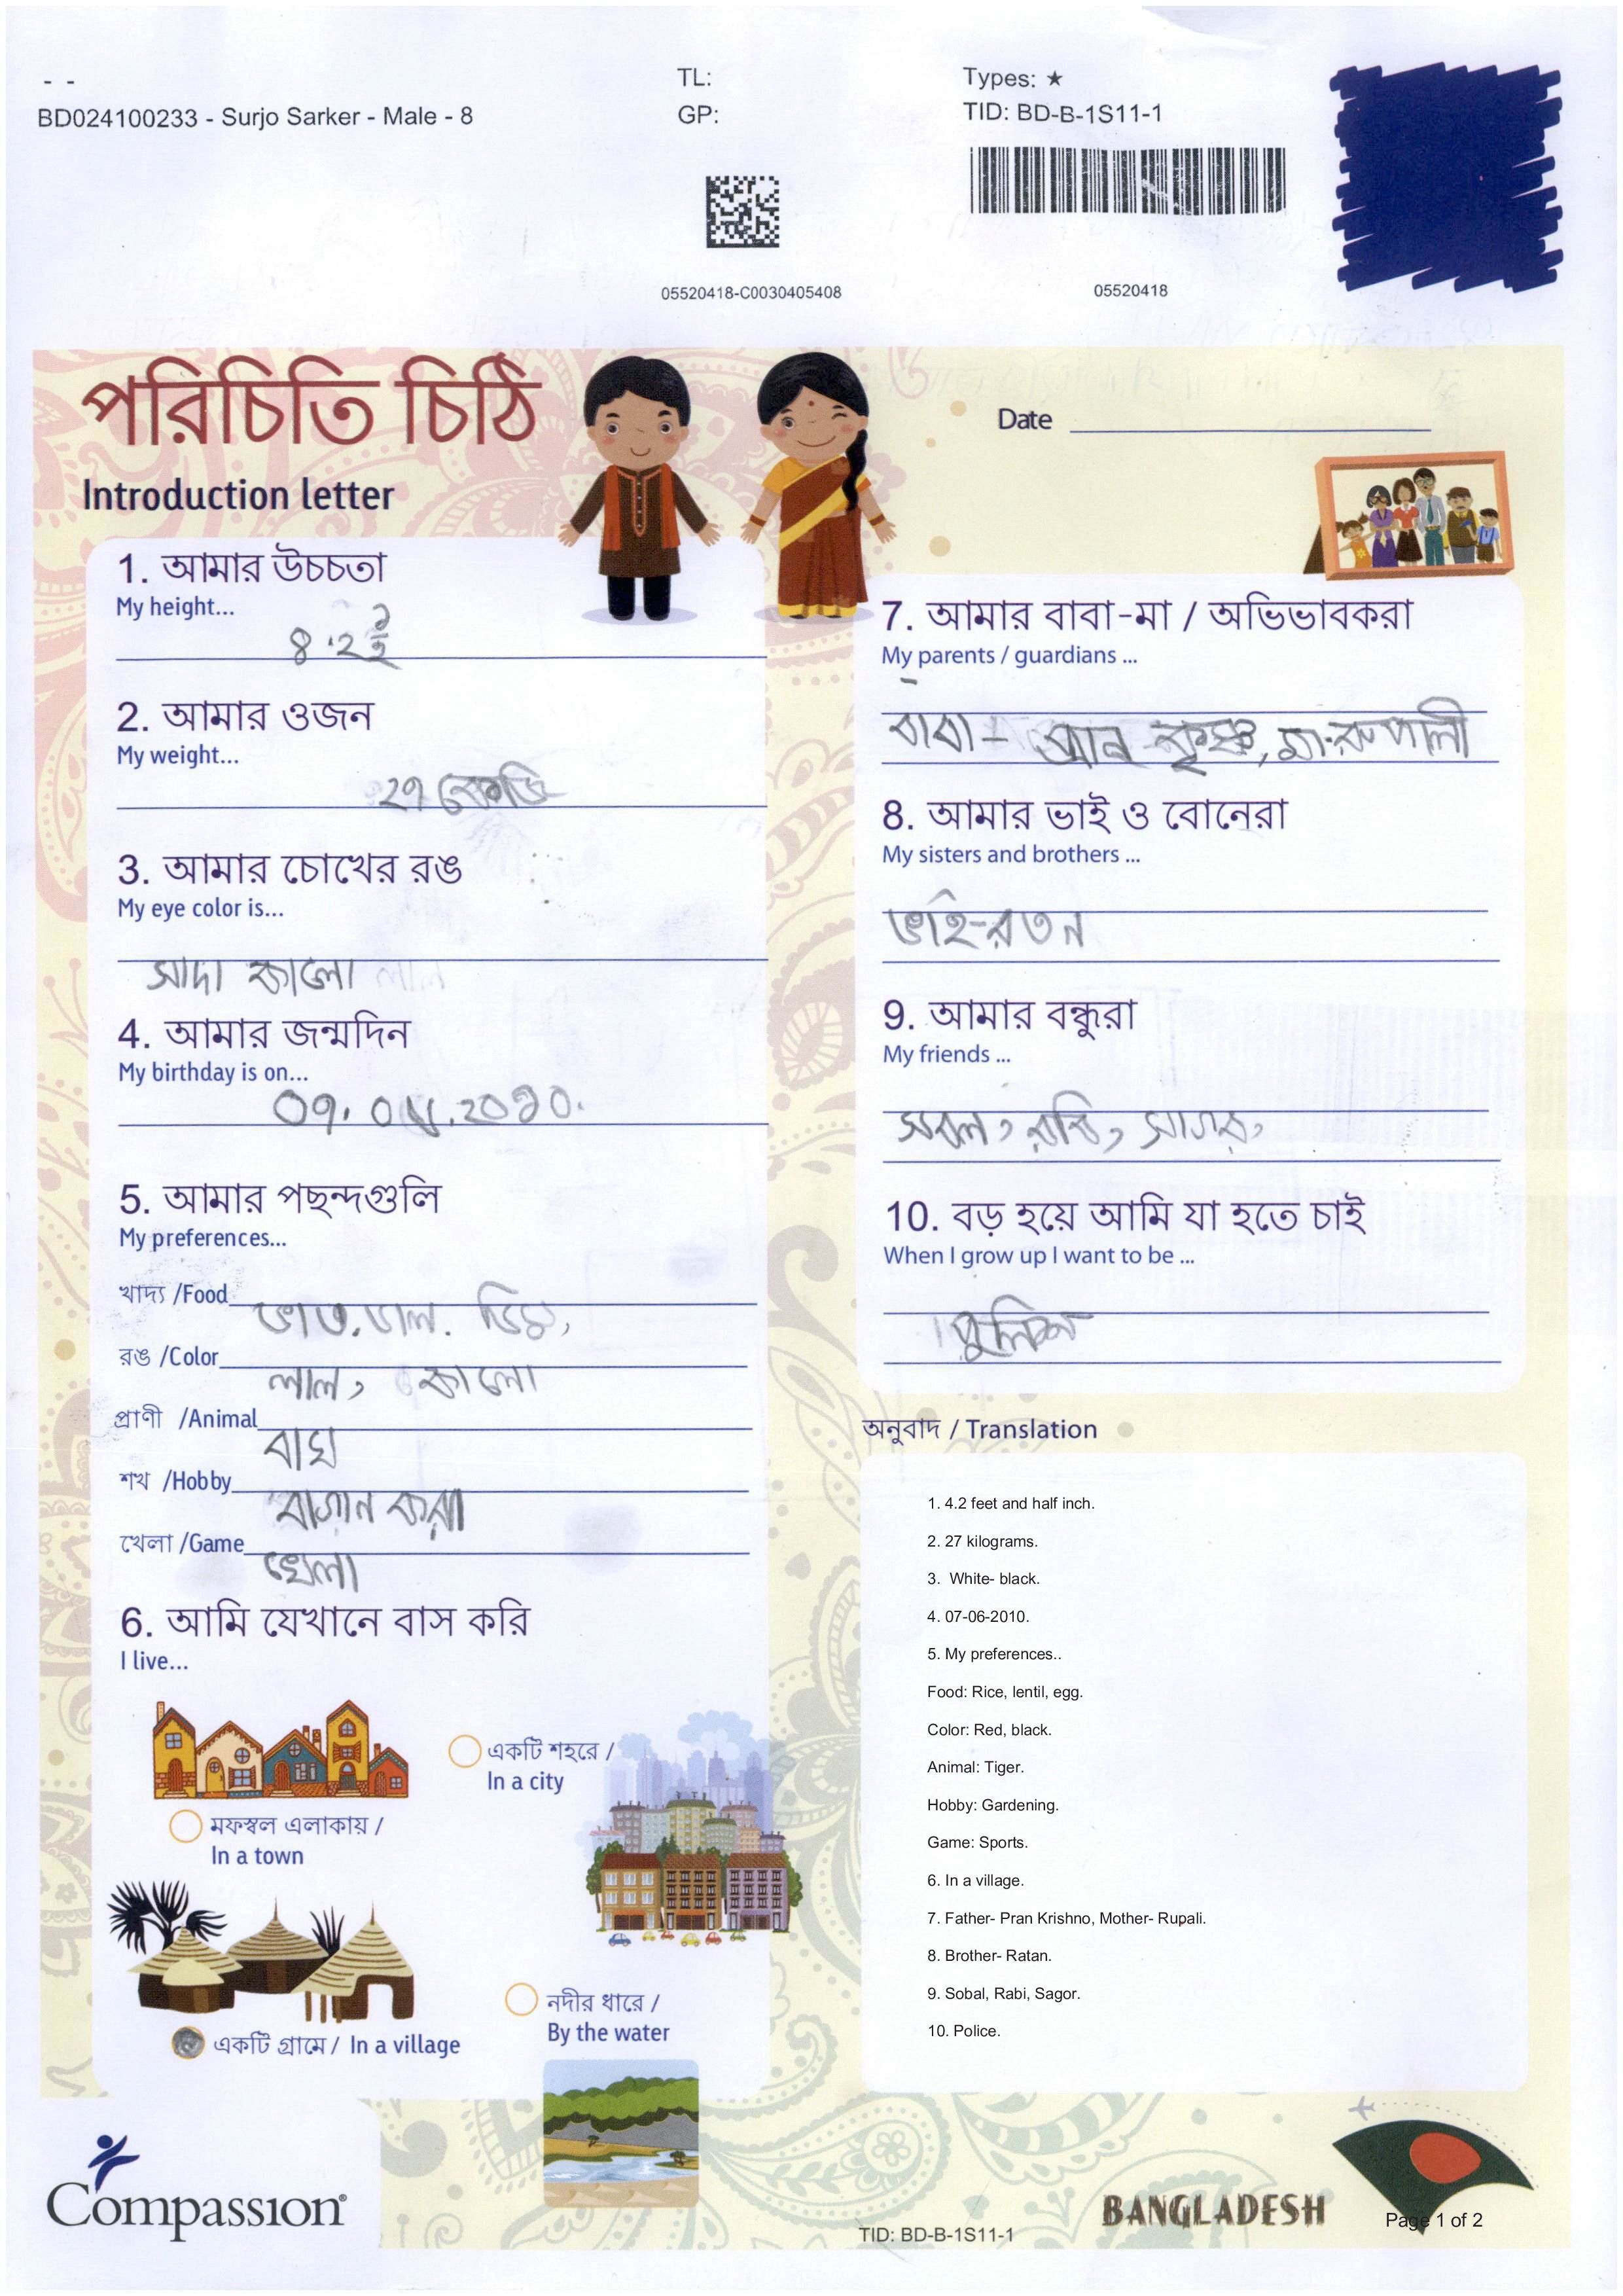 - -
BD024100233 - Surjo Sarker - Male - 8
TL:
GP:
Types: ★
TID: BD-B-1S11-1
05520418-C0030405408
05520418
পরিচিতি চিঠি
Introduction letter
Date
1. আমার উচচতা
My height...
2. আমার ওজন
My weight...
২৭ কেজি
3. আমার চোখের রঙ
My eye color is...
সাদা কালো
4. আমার জন্মদিন
My birthday is on...
5. আমার পছন্দগুলি
My preferences...
খাদ্য /Food ভাত. ডাল. ডিম,
রঙ /Color লাল, কালো
প্রাণী /Animal বাঘ
শখ /Hobby বাগান করা
খেলা /Game খেলা
6. আমি যেখানে বাস করি
I live...
মফস্বল এলাকায় /
In a town
একটি শহরে /
In a city
একটি গ্রামে / In a village
নদীর ধারে /
By the water
7. আমার বাবা-মা / অভিভাবকরা
My parents / guardians ...
বাবা - প্রান কৃষ্ণ, মা-রুপালী
8. আমার ভাই ও বোনেরা
My sisters and brothers ...
ভাই-রতন
9. আমার বন্ধুরা
My friends ...
সবল, রবি, সাগর,
10. বড় হয়ে আমি যা হতে চাই
When I grow up I want to be ...
পুলিশ
অনুবাদ / Translation
1. 4.2 feet and half inch.
2. 27 kilograms.
3. White- black.
4. 07-06-2010.
5. My preferences..
Food: Rice, lentil, egg.
Color: Red, black.
Animal: Tiger.
Hobby: Gardening.
Game: Sports.
6. In a village.
7. Father- Pran Krishno, Mother- Rupali.
8. Brother- Ratan.
9. Sobal, Rabi, Sagor.
10. Police.
Compassion®
TID: BD-B-1S11-1
BANGLADESH
Page 1 of 2